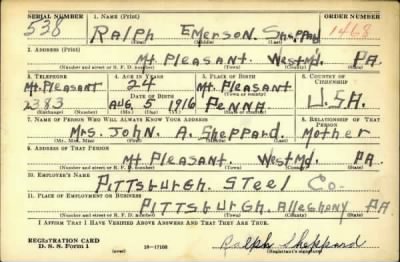 SERIAL NUMBER 1. NAME (Print) ORDER NUMBER
538 RALPH EMERSON SHEPPARD 1468
(First) (Middle) (Last)
2. ADDRESS (Print)
Mt PLEASANT. WESTM'd. PA.
(Number and street or R. F. D. number) (Town) (County) (State)
3. TELEPHONE 4. AGE IN YEARS 5. PLACE OF BIRTH 6. COUNTRY OF CITIZENSHIP
Mt. PLEASANT 24 Mt PLEASANT
DATE OF BIRTH
2383 AUG. 5 1916 PENNA U.S.A.
(Exchange) (Number) (Mo.) (Day) (Yr.) (State or country)
7. NAME OF PERSON WHO WILL ALWAYS KNOW YOUR ADDRESS 8. RELATIONSHIP OF THAT PERSON
MRS. JOHN. A. SHEPPARD. MOTHER
(Mr., Mrs., Miss) (First) (Middle) (Last)
9. ADDRESS OF THAT PERSON
Mt PLEASANT. WESTMd. PA
(Number and street or R. F. D. number) (Town) (County) (State)
10. EMPLOYER'S NAME
PITTSBURGH. STEEL CO.
11. PLACE OF EMPLOYMENT OR BUSINESS
PITTSBURGH. ALLEGHANY PA
(Number and street or R. F. D. number) (Town) (County) (State)
I AFFIRM THAT I HAVE VERIFIED ABOVE ANSWERS AND THAT THEY ARE TRUE.
REGISTRATION CARD
D. S. S. Form 1 (over) 16—17105 Ralph Sheppard
(Registrant's signature)